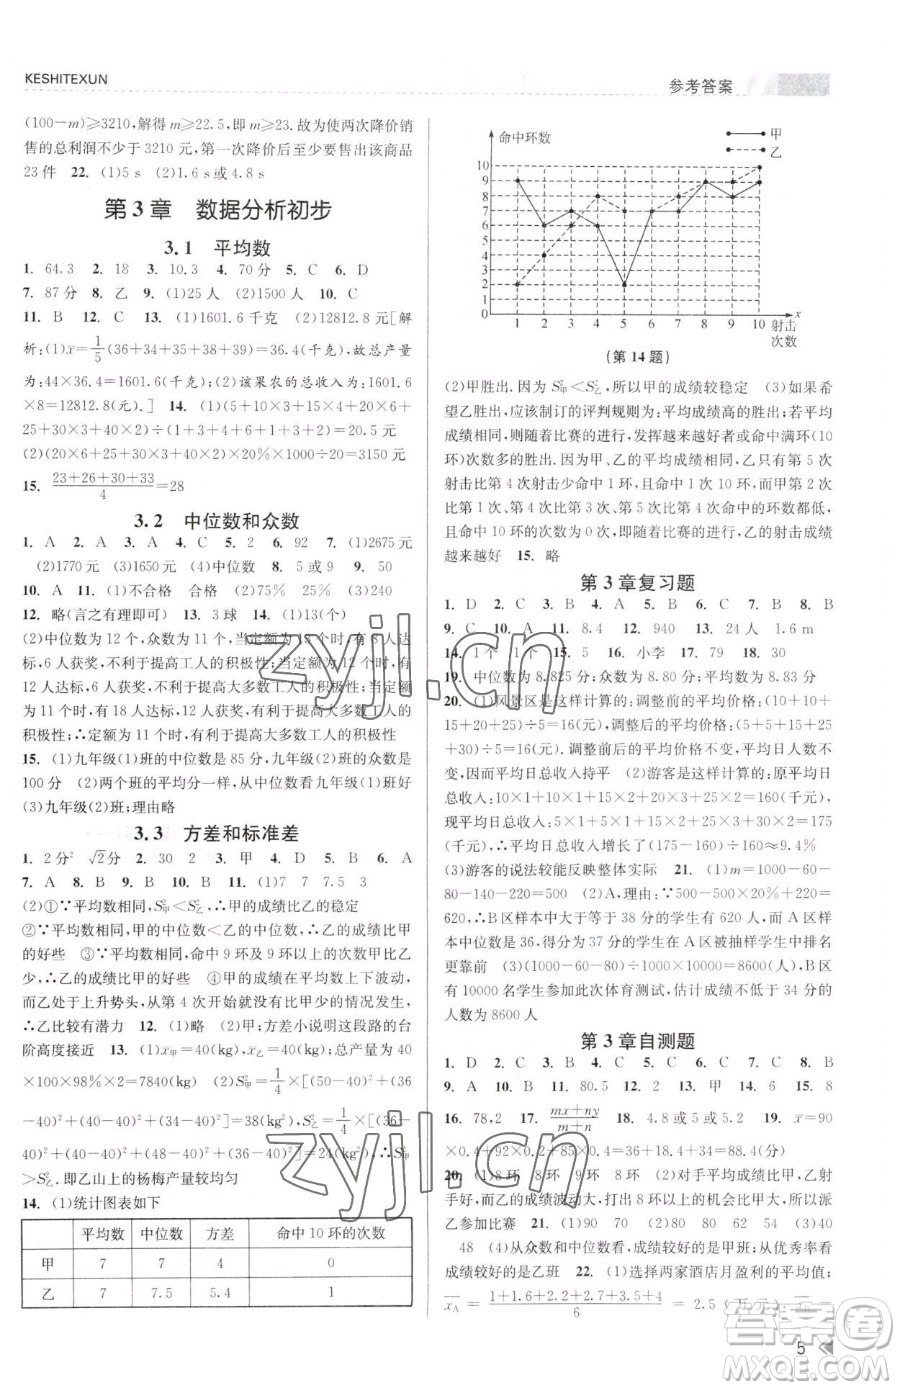 KESHITEXUN
参考答案
(100-m)≥3210,解得 m≥22.5,即 m≥23.故为使两次降价销
售的总利润不少于 3210 元,第一次降价后至少要售出该商品
23 件 22. (1)5 s (2)1.6 s或 4.8 s
第 3 章 数据分析初步
3.1 平均数
1. 64.3 2. 18 3. 10.3 4. 70分 5. C 6. D
7. 87分 8. 乙 9. (1)25人 (2)1500人 10. C
11. B 12. C 13. (1)1601.6千克 (2)12812.8元[解
析:(1)x̄=1/5(36+34+35+38+39)=36.4(千克),故总产量
为:44×36.4=1601.6(千克) (2)该果农的总收入为:1601.6
×8=12812.8(元).] 14. (1)(5+10×3+15×4+20×2+
25×3+30×4+40×2)÷(1+3+4+2+3+4+1+3+2)=20.5元
(2)(20×6+25×3+30×4+40×2+50)×20%=3150元
15. (23+26+30+33)/4=28
3.2 中位数和众数
1. A 2. A 3. A 4. C 5. 2 6. 92 7. (1)2675元
(2)1575元 (3)1450元 (4)中位数 8. 5或9 9. 50
10. A 11. (1)不合格 合格 (2)75% 25% (3)240
12. 略(言之有理即可) 13. 3球 14. (1)13(个)
(2)中位数为 12 个,众数为 11 个,当定额为 13 时,有 8 人
达标,6 人获奖,不利于提高工人的积极性;当定额为 12 时,有
12 人达标,8 人获奖,不利于提高大多数工人的积极性;当定额
为 11 时,有 18 人达标,12 人获奖,有利于提高大多数工人的
积极性;∴定额为 11 个时,有利于提高大多数工人的积极性
15. (1)九年级(1)班的中位数是 85 分,九年级(2)班的众数是
100 分 (2)两个班的平均分一样,从中位数看九年级(1)班好
(3)九年级(2)班;理由略
3.3 方差和标准差
1. 2分² √2分 2. 30 2 3. 甲 4. D 5. B 6. A
7. A 8. B 9. B 10. B 11. (1)7 7 7.5 3
(2)①∵平均数相同,S²甲<S²乙,∴甲的成绩比乙的稳定
②∵平均数相同,甲的中位数<乙的中位数,∴乙的成绩比甲
的好些 ③∵平均数相同,命中 9 环及 9 环以上的次数甲比乙
少,∴乙的成绩比甲的好些 ④甲的成绩在平均数上下波动,
而乙处于上升势头,从第 4 次开始没有比甲少的情况发生,
∴乙比较有潜力 12. (1)略 (2)甲;方差小说明这段路的台
阶高度接近 13. (1)x̄甲=40(kg),x̄乙=40(kg),总产量为 40
×100×98%×2=7840(kg) (2)S²甲=1/4×[(50-40)²+(36
-40)²+(40-40)²+(34-40)²]=38(kg²),S²乙=1/4×[(36-
40)²+(40-40)²+(48-40)²+(36-40)²]=24(kg²),∴S²甲
>S²乙.即乙山上的杨梅产量较均匀
14. (1)统计图表如下
平均数 中位数 方差 命中 10 环的次数
甲 7 7 4 0
乙 7 7.5 5.4 1
命中环数
甲
乙
10
9
8
7
6
5
4
3
2
1
0
1 2 3 4 5 6 7 8 9 10 x
射击
次数
(第 14 题)
(2)甲胜出.因为 S²甲<S²乙,所以甲的成绩较稳定 (3)如果希
望乙胜出,应该制订的评判规则为:平均成绩高的胜出;若平均
成绩相同,则随着比赛的进行,发挥越来越好者或命中满环(10
环)次数多的胜出.因为甲、乙的平均成绩相同,乙只有第 5 次
射击比第 4 次射击少命中 1 环,且命中 1 次 10 环,而甲第 2 次
比第 1 次、第 4 次比第 3 次、第 5 次比第 4 次命中的环数都低,
且命中 10 环的次数为 0 次,即随着比赛的进行,乙的射击成绩
越来越好 15. 略
第 3 章复习题
1. D 2. C 3. B 4. A 5. C 6. D 7. B 8. B
9. C 10. A 11. 8.4 12. 940 13. 24人 1.6m
14. 1个 1个 15. 5 16. 小李 17. 79 18. 30
19. 中位数为 8.825分;众数为 8.83分;平均数为 8.83分
20. (1)风景区是这样计算的:调整前的平均价格:(10+10+
15+20+25)÷5=16(元),调整后的平均价格:(5+5+15+25
+30)÷5=16(元).调整前后的平均价格不变,平均日人数不
变,因此平均日总收入持平 (2)游客是这样计算的:原平均日总
收入:10×1+10×1+15×2+20×3+25×2=160(千元),
现平均日总收入:5×1+5×1+15×2+25×3+30×2=175
(千元),∴平均日总收入增长了(175-160)÷160≈9.4%
(3)游客的说法较能反映整体实际 21. (1)m=1000-60-
80-140-220=500 (2)A,理由:∵500÷500×20%+220×
20%+140=620,∴B区样本中大于等于 38 分的有 620 人,即 B区样
本中位数是 38 分;而 37 分的学生在 A 区被抽样学生中排名
更靠前 (3)(1000-60-80)÷1000×10000=8600(人),B区
有 10000 名学生参加此次体育测试,估计成绩不低于 34 分的
人数为 8600 人
第 3 章自测题
1. D 2. D 3. B 4. C 5. C 6. C 7. C 8. B
9. A 10. B 11. 80.5 12. D 13. 甲 14. 6 15. 8
16. 78.2 17. (mx+ny)/(m+n) 18. 4.8或5或5.2 19. x̄=90
×0.1+92×0.2+85×0.4+90×0.3=88.4(分)
20. (1)8环 8环 9环 8环 (2)对手平均成绩比甲,乙射
手好,而乙的成绩波动大,打出 8 环以上的机会比甲大,所以派
乙参加比赛 21. (1)90 70 (2)80 80 (3)40
48 (4)从众数和中位数看,成绩较好的是甲班;从优秀率看
成绩较好的是乙班 22. (1)选择两家酒店月盈利的平均值;
x̄A=(1+1.6+2.2+2.7+3.5+4)/6=2.5(万元),x̄B
5
zyjl.cn
zyjl.cn
答案圈
MXQE.COM